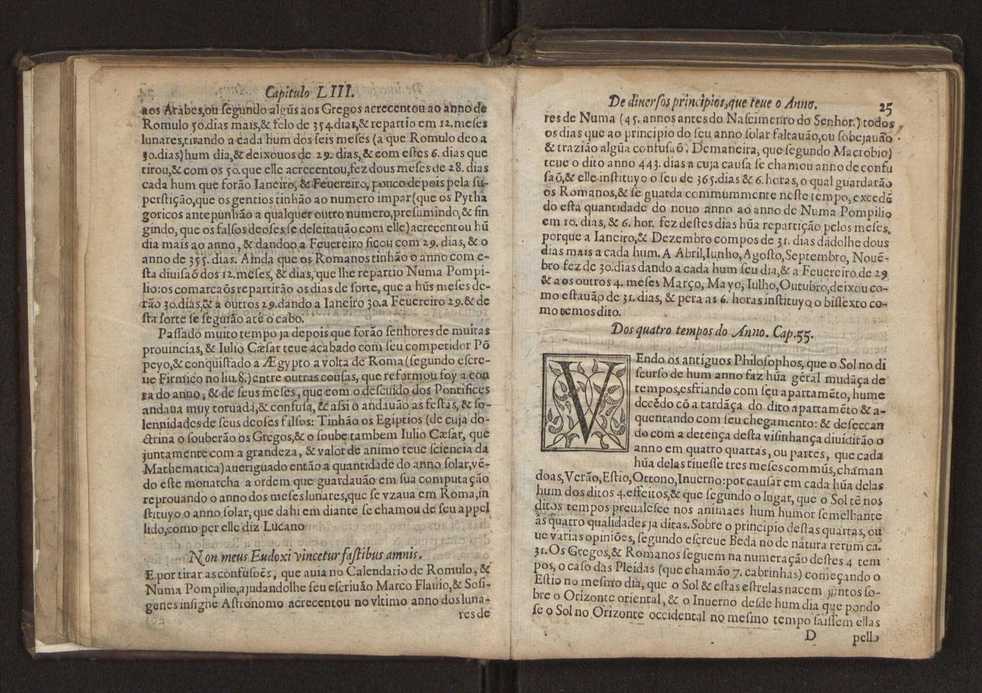 Capitulo LIII.
aos Arabes,ou segundo algũs aos Gregos acrecentou ao anno de
Romulo 50.dias mais,& felo de 354.dias,& repartio em 12.meses
lunares,tirando a cada hum dos seis meses (a que Romulo deo a
30.dias)hum dia,& deixouos de 29. dias,& com estes 6. dias que
tirou,& com os 50.que elle acrecentou,fez dous meses de 28. dias
cada hum que forão Ianeiro, & Feuereiro, pouco depois pela su-
perstição,que os gentios tinhão ao numero impar(que os Pytha
goricos antepunhão a qualquer outro numero,presumindo,& fin
gindo, que os falsos deoses se deleitauão com elle)acrecentou hũ
dia mais ao anno, & dandoo a Feuereiro ficou com 29. dias, & o
anno de 355. dias. Ainda que os Romanos tinhão o anno com e-
sta diuisaõ dos 12.meses, & dias, que lhe repartio Numa Pompi-
lio:os comarcaõs repartirão os dias de sorte, que a hũs meses de-
rão 30.dias,& a outros 29.dando a Ianeiro 30.a Feuereiro 29.& de
sta sorte se seguião atè o cabo.
Passado muito tempo ja depois que forão senhores de muitas
prouincias, & Iulio Cæsar teue acabado com seu competidor Põ
peyo,& conquistado a Ægypto a volta de Roma (segundo escre-
ue Firmico no liu.8.)entre outras cousas, que reformou foy a cou
sa do anno, & de seus meses, que com o descuido dos Pontifices
andaua muy toruada,& confusa, & assi o andauão as festas, & so-
lennidades de seus deoses falsos: Tinhão os Egiptios (de cuja do-
ctrina o souberão os Gregos,& o soube tambem Iulio Cæsar, que
juntamente com a grandeza, & valor de animo teue sciencia da
Mathematica)aueriguado então a quantidade do anno solar,vẽ-
do este monarcha a ordem que guardauão em sua computação
reprouando o anno dos meses lunares,que se vzaua em Roma,in
stituyo o anno solar, que dahi em diante se chamou de seu appel
lido,como per elle diz Lucano
Non meus Eudoxi vincetur fastibus annis.
E por tirar as confusoẽs, que auia no Calendario de Romulo, &
Numa Pompilio,ajudandolhe seu escriuão Marco Flauio,& Sosi-
genes insigne Astronomo acrecentou no vltimo anno dos luna-
res de
De diuersos principios,que teue o Anno. 25
res de Numa (45. annos antes do Nascimento do Senhor.) todos
os dias que ao principio do seu anno solar faltauão,ou sobejauão
& trazião algũa confusaõ. Demaneira, que segundo Macrobio)
teue o dito anno 443. dias a cuja causa se chamou anno de confu
saõ,& elle instituyo o seu de 365.dias & 6. horas, o qual guardarão
os Romanos,& se guarda commummente neste tempo, excedẽ
do esta quantidade do nouo anno ao anno de Numa Pompilio
em 10. dias, & 6. hor. fez destes dias hũa repartição pelos meses,
porque a Ianeiro,& Dezembro compos de 31. dias dãdolhe dous
dias mais a cada hum. A Abril,Iunho,Agosto,Septembro, Nouẽ-
bro fez de 30.dias dando a cada hum seu dia,& a Feuereiro de 29
& a os outros 4. meses Março, Mayo, Iulho,Outubro,deixou co-
mo estauão de 31. dias, & pera as 6. horas instituyo o bissexto co-
mo temos dito.
Dos quatro tempos do Anno. Cap.55.
VEndo os antiguos Philosophos, que o Sol no di
scurso de hum anno faz hũa géral mudãça de
tempos,esfriando com seu apartamẽto, hume
decẽdo cõ a tardãça do dito apartamẽto & a-
quentando com seu chegamento: & deseccan
do com a detença desta visinhança diuidirão o
anno em quatro quartas, ou partes, que cada
hũa delas tiuesse tres meses commũs,chaman
doas,Verão,Estio,Ottono,Inuerno:por causar em cada hũa delas
hum dos ditos 4.effeitos,& que segundo o lugar, que o Sol tẽ nos
ditos tempos preualesce nos animaes hum humor semelhante
às quatro qualidades ja ditas. Sobre o principio destas quartas, ou
ue varias opiniões, segundo escreue Beda no de natura rerum ca.
31. Os Gregos,& Romanos seguem na numeração destes 4 tem
pos, o caso das Pleidas (que chamão 7. cabrinhas) começando o
Estio no mesmo dia, que o Sol & estas estrelas nacem juntos so-
bre o Orizonte oriental, & o Inuerno desde hum dia que pondo
se o Sol no Orizonte occidental no mesmo tempo saissem ellas
D pello